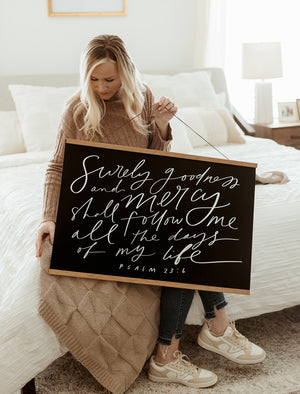 Surely goodness
and mercy
shall follow me
all the days
of my life
PSALM 23:6